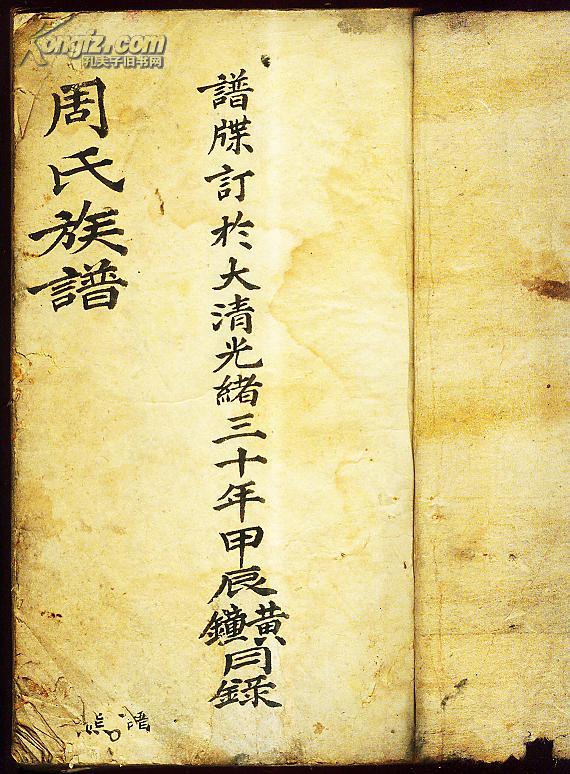 Kongfz.com
孔夫子旧书网
譜牒訂於大清光緒三十年甲辰黄鐘月錄
周氏族譜
譜